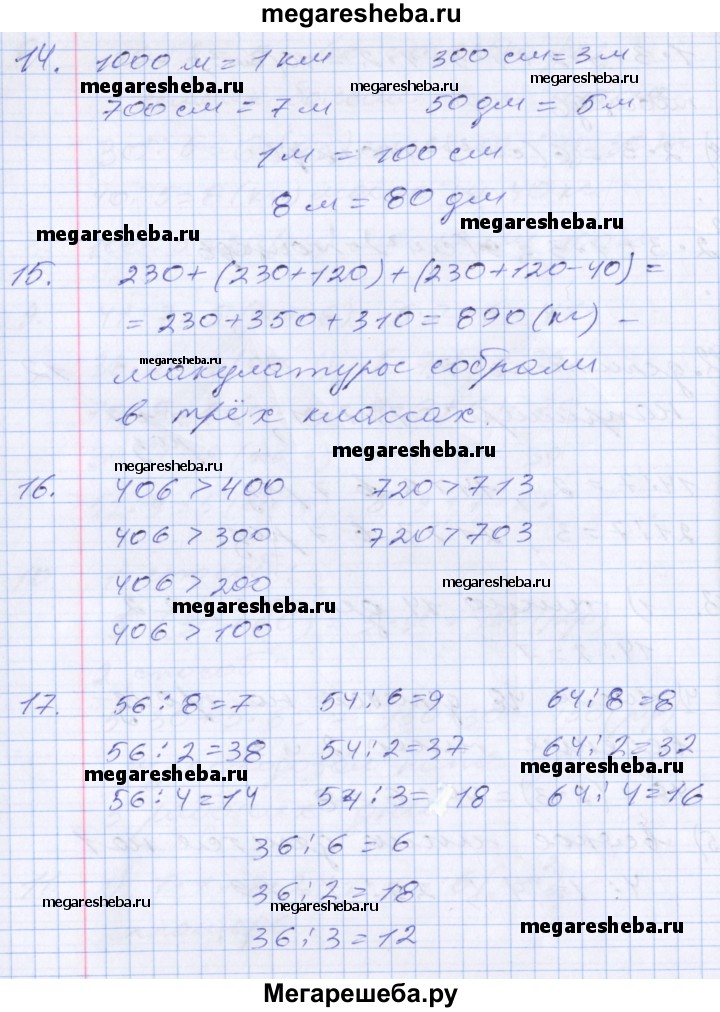 megaresheba.ru
14. 1000 м = 1 км 300 см = 3 м
megaresheba.ru megaresheba.ru
700 см = 7 м 50 дм = 5 м
1 м = 100 см
8 м = 80 дм
megaresheba.ru megaresheba.ru
15. 230+(230+120)+(230+120-40)=
= 230+350+310=890 (кг) –
megaresheba.ru
макулатуры собрали
в трёх классах.
megaresheba.ru
megaresheba.ru
16. 406 > 400 720 > 713
406 > 300 720 > 703
406 > 200 megaresheba.ru
megaresheba.ru
406 > 100
17. 56:8=7 54:6=9 64:8=8
56:2=38 54:2=37 64:2=32
megaresheba.ru megaresheba.ru
56:4=14 54:3= 18 64:4=16
36:6=6
36:2=18
megaresheba.ru megaresheba.ru megaresheba.ru
36:3=12
Мегарешеба.ру